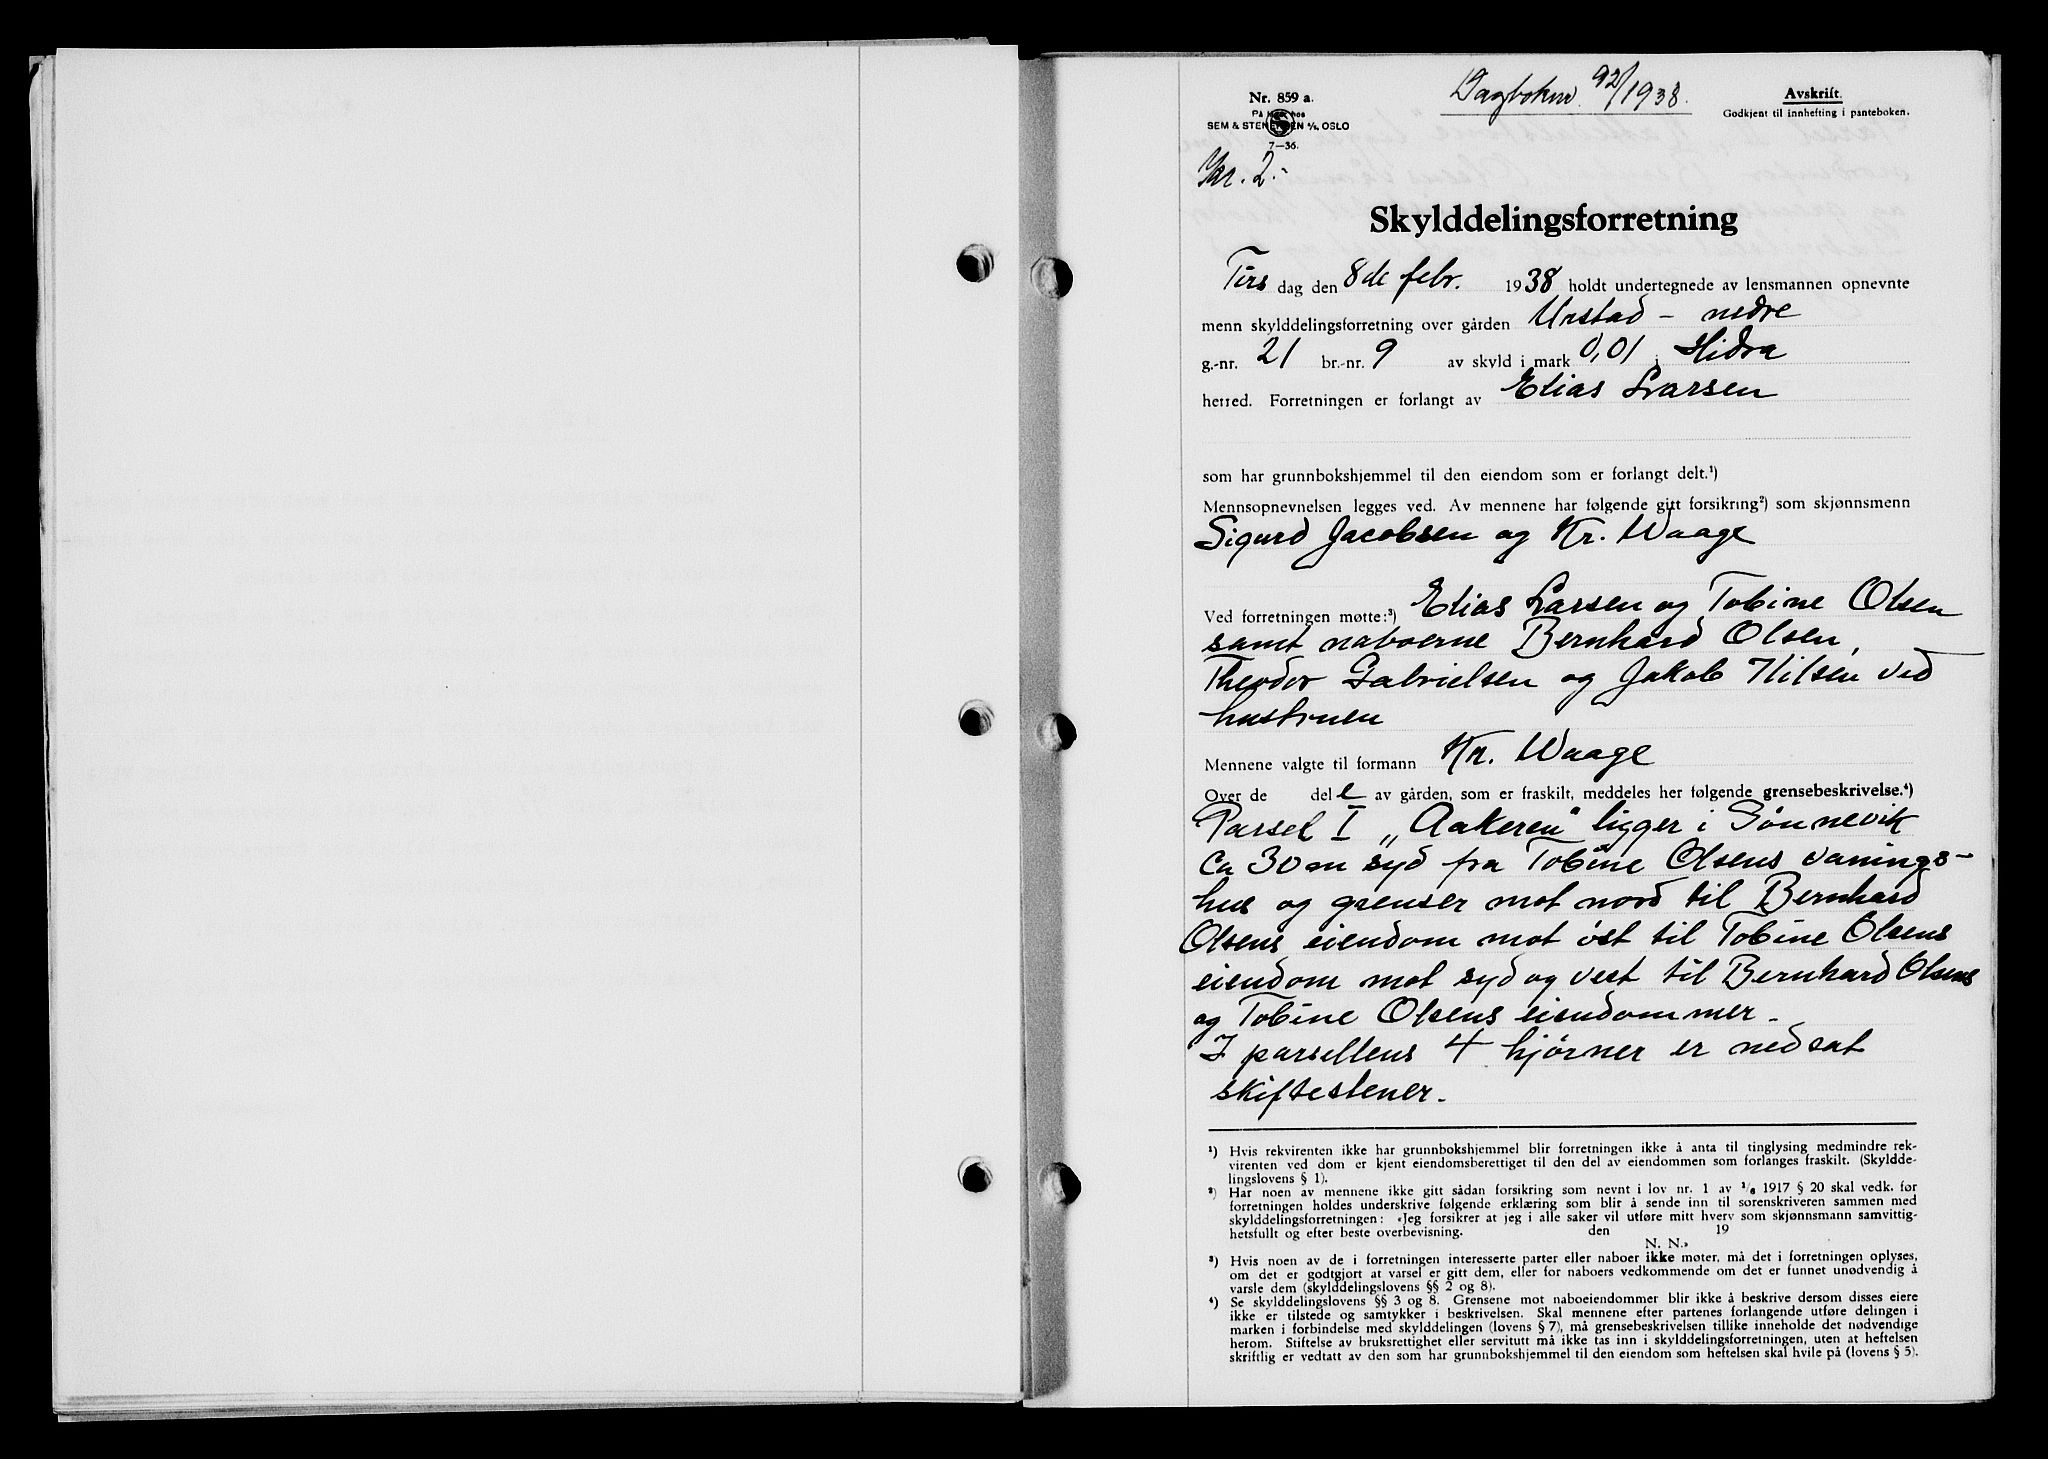 Nr. 859 a.
På lager hos
SEM & STENERSEN A/S, OSLO
7—36.
Dagboknr. 92/1938.
Avskrift.
Godkjent til innhefting i panteboken.
Kr. 2.-
Skylddelingsforretning
Tirsdag den 8de febr. 1938 holdt undertegnede av lensmannen opnevnte
menn skylddelingsforretning over gården Urstad - nedre
g.-nr. 21 br.-nr. 9 av skyld i mark 0,01 i Hidra
herred. Forretningen er forlangt av Elias Larsen
som har grunnbokshjemmel til den eiendom som er forlangt delt.¹)
Mennsopnevnelsen legges ved. Av mennene har følgende gitt forsikring²) som skjønnsmenn
Sigurd Jacobsen og Kr. Waage
Ved forretningen møtte:³) Elias Larsen og Tobine Olsen
samt naboerne Bernhard Olsen,
Theodor Gabrielsen og Jakob Nilsen ved
hustruen
Mennene valgte til formann Kr. Waage
Over de dele av gården, som er fraskilt, meddeles her følgende grensebeskrivelse.⁴)
Parsel I „Aakeren" ligger i Sønnevik
ca 30 m syd fra Tobine Olsens vånings-
hus og grenser mot nord til Bernhard
Olsens eiendom mot øst til Tobine Olsens
eiendom mot syd og vest til Bernhard Olsens
og Tobine Olsens eiendommer.
I parsellens 4 hjørner er nedsat
skiftestener.
¹) Hvis rekvirenten ikke har grunnbokshjemmel blir forretningen ikke å anta til tinglysing medmindre rek-
virenten ved dom er kjent eiendomsberettiget til den del av eiendommen som forlanges fraskilt. (Skyldde-
lingslovens § 1).
²) Har noen av mennene ikke gitt sådan forsikring som nevnt i lov nr. 1 av ¹/₆ 1917 § 20 skal vedk. før
forretningen holdes underskrive følgende erklæring som blir å sende inn til sorenskriveren sammen med
skylddelingsforretningen: «Jeg forsikrer at jeg i alle saker vil utføre mitt hverv som skjønnsmann samvittig-
hetsfullt og efter beste overbevisning. den 19
N. N.»
³) Hvis noen av de i forretningen interesserte parter eller naboer ikke møter, må det i forretningen oplyses,
om det er godtgjort at varsel er gitt dem, eller for naboers vedkommende om det er funnet unødvendig å
varsle dem (skylddelingslovens §§ 2 og 8).
⁴) Se skylddelingslovens §§ 3 og 8. Grensene mot naboeiendommer blir ikke å beskrive dersom disses eiere
ikke er tilstede og samtykker i beskrivelsen. Skal mennene efter partenes forlangende utføre delingen i
marken i forbindelse med skylddelingen (lovens § 7), må grensebeskrivelsen tillike inneholde det nødvendige
herom. Stiftelse av bruksrettighet eller servitutt må ikke tas inn i skylddelingsforretningen, uten at heftelsen
skriftlig er vedtatt av den som har grunnbokshjemmel til den eiendom som heftelsen skal hvile på (lovens § 5).